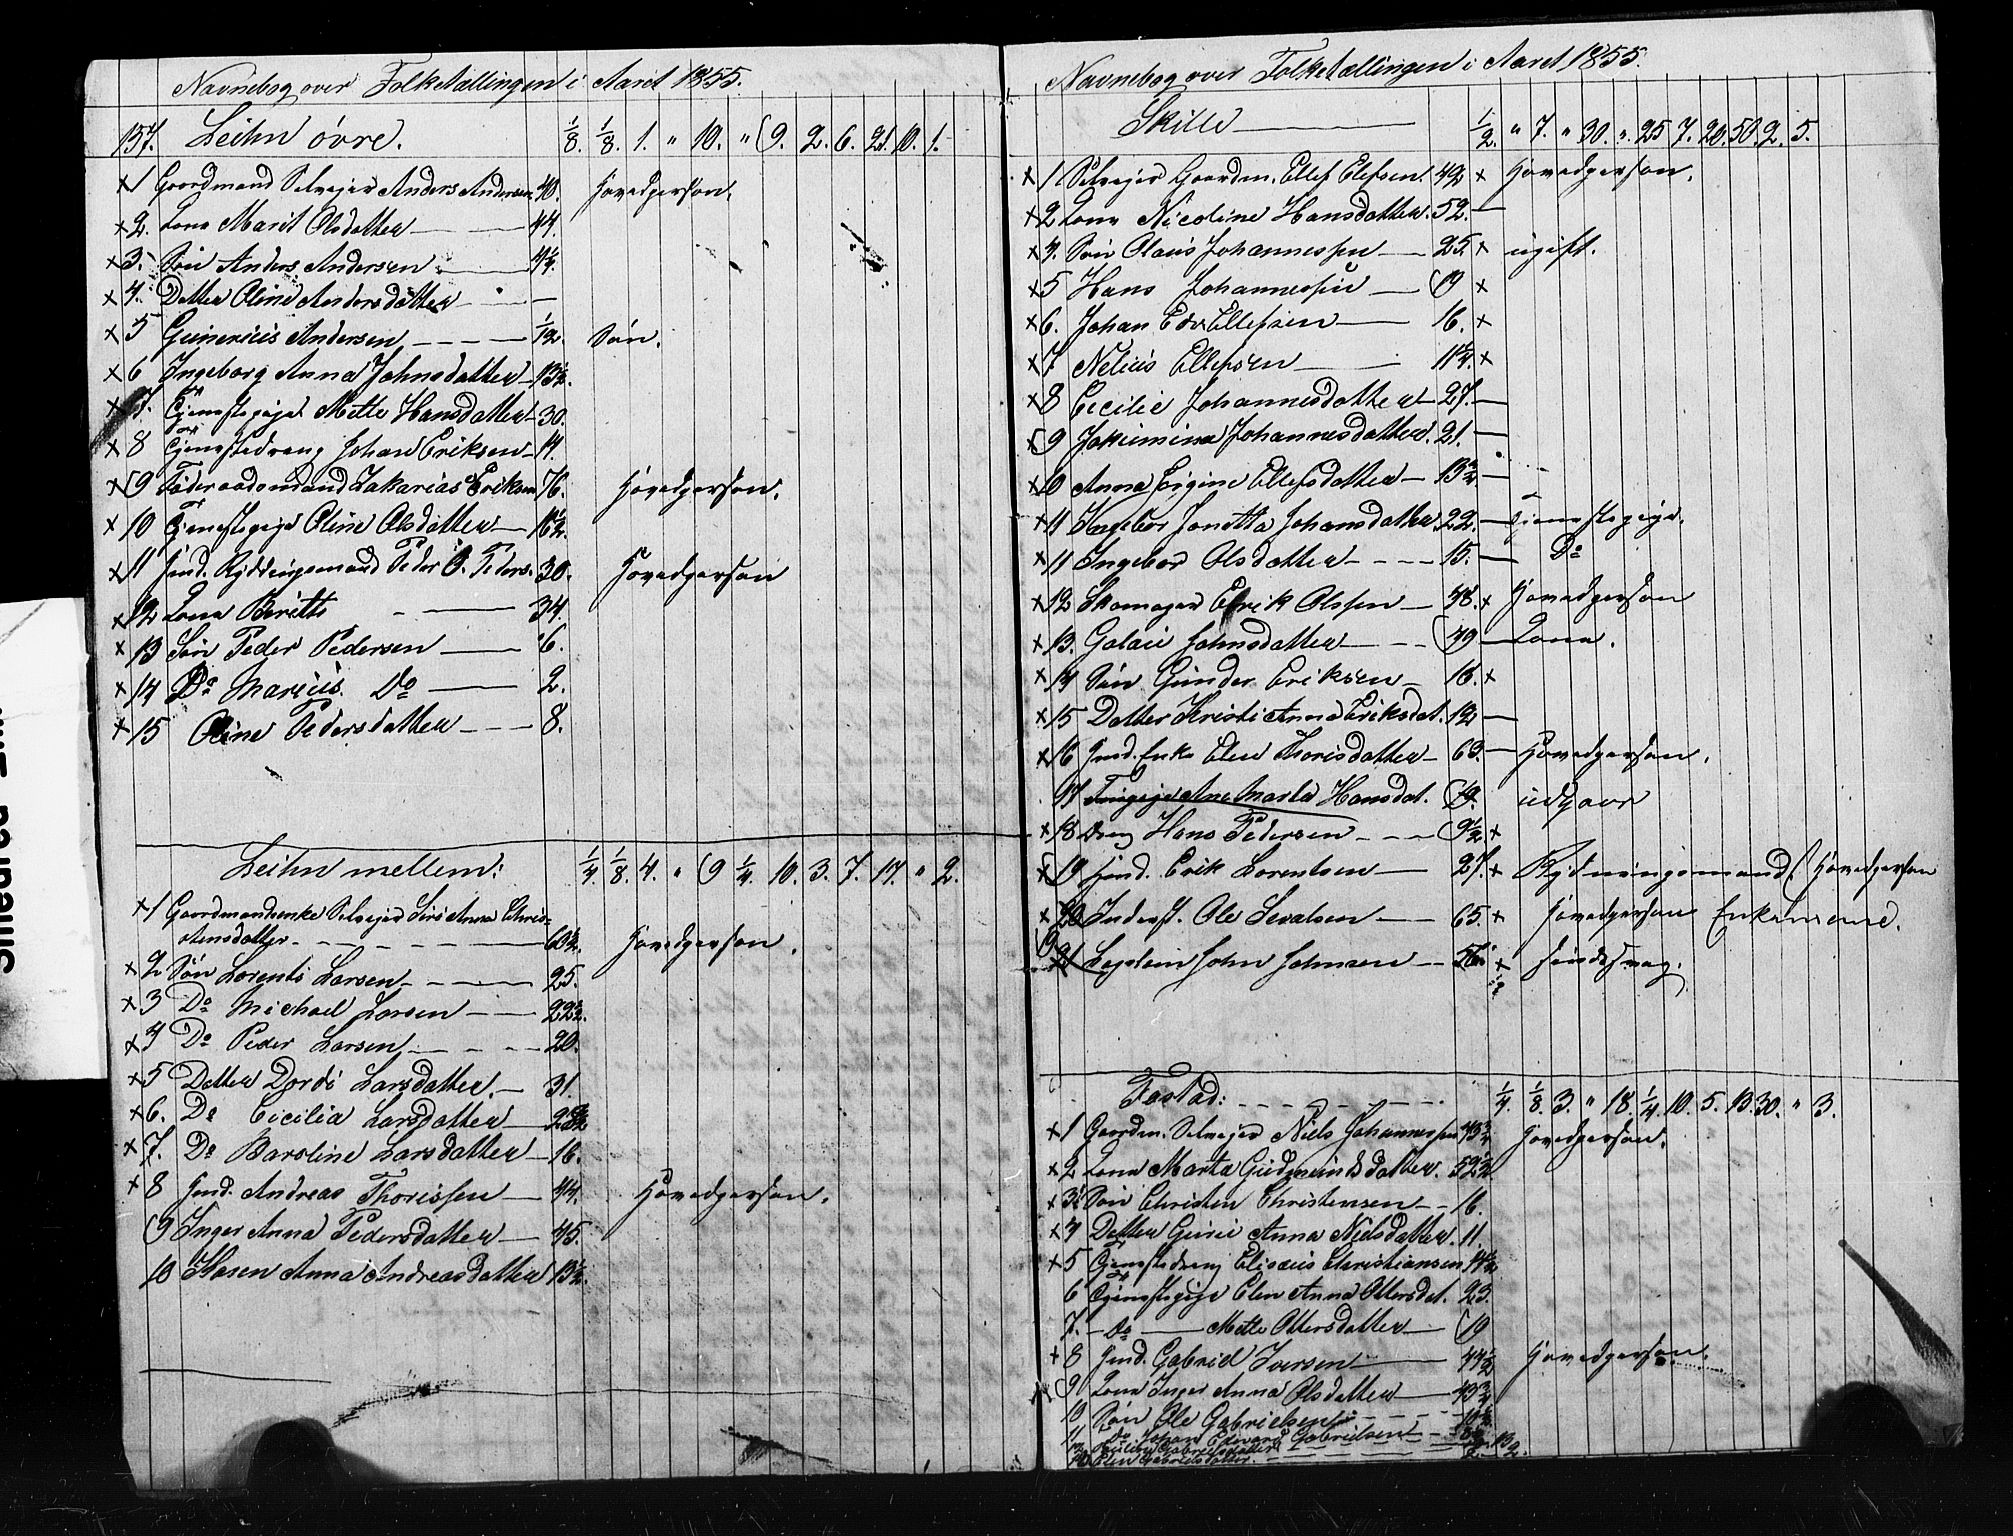 Navnebog over Folketællingen i Aaret 1855.
137. Leihn övre. 1/8. 1/8. 1. " 10. " 9. 2. 6. 21. 10. 1.
x 1 Goordmand Selvejer Anders Andersen 40. Hovedperson.
x 2. Kona Marit Olsdatter 44.
x 3. Sön Anders Andersen 4¼.
x 4. Datter Oline Andersdatter —
x 5 Gunerius Andersen 1/12. Sön.
x 6 Ingeborg Anna Johnsdatter 13½.
x 7. Tjenestepige Mette Hansdatter 30.
x 8 Tjenestedreng Johan Eriksen 11.
x 9 Föderaadsmand Zakarias Eriksen 76. Hovedperson.
x 10 Tjenestepige Oline Olsdatter 16½.
x 11 Ind. Rydningsmand Peder O. Peders. 30. Hovedperson
x 12 Kona Beritte 34.
x 13 Sön Peder Pedersen 6.
x 14 Do Marius Do 2.
x 15 Oline Pedersdatter 8.
Leihn mellem: 1/4. 1/8. 4. " 9 1/4. 10. 3. 7. 17. " 2.
x 1 Goordmandsenke Selvejer Siri Anna Chris-
tensdatter 60½. Hovedperson.
x 2 Sön Lorents Larsen 25.
x 3 Do Michael Larsen 22½.
x 4 Do Peder Larsen 20.
x 5 Datter Dordi Larsdatter 31.
x 6. Do Cicilia Larsdatter
x 7. Do Karoline Larsdatter 16.
x 8 Ind. Andreas Thorissen 44. Hovedperson.
9 Inger Anna Pedersdatter 45.
10 Karen Anna Andreasdatter 13½.
Navnebog over Folketællingen i Aaret 1855.
Skille 1/2. " 7. " 30. " 25 7. 20. 50. 2. 5.
x 1 Selvejer Goordm. Ellef Elefsen. 42 x Hovedperson.
x 2 Kona Nicoline Hansdatter. 52. —
x 4. Sön Olaus Johannessen 25. x ugift.
x 5 Hans Johannessen 19 x
x 6. Johan Edv Ellefsen 16. x
x 7 Nelius Ellefsen 11¼. x
x 8 Cecilie Johannesdatter 27. —
x 9 Jakimina Johannesdatter. 21. —
x 10 Anna Ergine Ellefsdatter 13½ —
x 11 Ingebor Jonetta Johansdatter 22. — Tjenestepige.
x 11 Ingebor Olsdatter 15. — Do
x 12 Skomager Erik Olssen 48. x Hovedperson
x 13. Golau Johnsdatter 49 — Kona.
x 14 Sön Gunder Eriksen 16. x
x 15 Datter Kristi Anna Eriksdat. 12 —
x 16 Ind. Enke Elen Thorisdatter 63. — Hovedperson.
17 Ane Marta Hansdat. 19. udgaar
x 18 Dreng Hans Pedersen 9½ x
x 19 Hind. Erik Lorentsen 27. x Rydningsmand Hovedperson
x 20 Inderst. Ole Sivalsen 65. x Hovedperson Enkemand.
x 21 Legslem John Johnsen 56. x Sindssvag.
Fostad: 1/4. 1/8. 3. " 18. 1/4. 10. 5. 13. 30. " 3.
x 1 Goordm. Selvejer Niels Johannessen 43¾ Hovedperson.
x 2 Kona Marta Gudmundsdatter. 52½
x 3 Sön Christen Christensen 16.
x 4 Datter Guru Anna Nielsdatter. 11.
x 5 Tjenestedreng Elisæus Christiansen 14½
6 Tjenestepige Elen Anna Ottersdat. 23.
7. Do Mette Ottersdatter 19
x 8 Ind. Gabriel Iversen 44½ Hovedperson.
9 Kona Inger Anna Olsdatter 43¾
10 Sön Ole Gabrielsen
11 Do Johan Edward Gabrielsen
12 Gabrielsdatter
13 Elen Gabrielsdatter